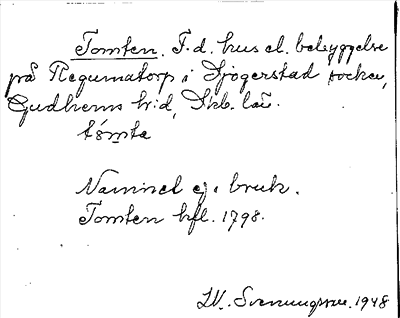 Tomten. F.d. hus el. bebyggelse
på Regumatorp i Sjögerstad socken,
Gudhems h:d, Skb. län.
tómta
Namnet ej i bruk.
Tomten hfl. 1798.
W. Svenungsson. 1948